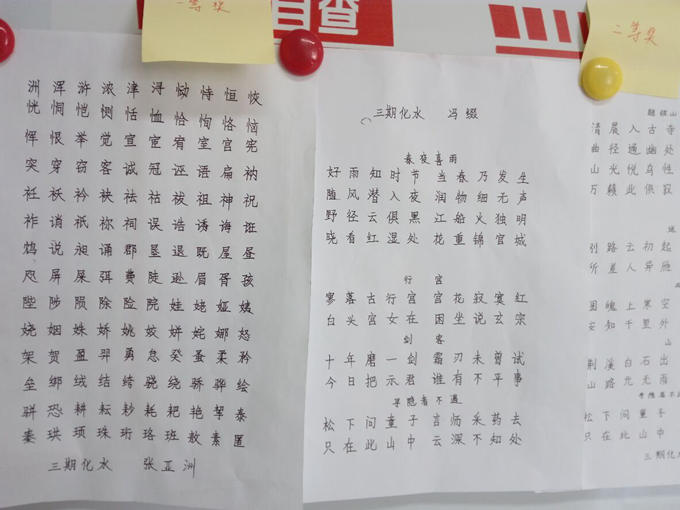 一等奖
自查
二等奖
洲浑浒浓津浔恸恃恒恢
恍恫恺恻恬恤恰恂恪恼
恽恨举觉宣宦宥室宫宪
突穿窃客诚冠诬语扁衲
衽袄衿袂祛祜祓祖神祝
祚诮祇祢祠误诰诱诲诳
鸩说昶诵郡垦退既屋昼
咫屏屎弭费陡逊眉胥孩
陛陟陨除险院娃姥娅姨
娆姻姝娇姚姣姘姹娜怒
架贺盈羿勇怠癸蚤柔矜
垒绑绒结绔骁绕骄骅绘
骈恐耕耘耖耗耙艳挈泰
秦珙顼珠珩珞班敖素匿
三期化水 张亚洲
三期化水 冯缀
春夜喜雨
好雨知时节 当春乃发生
随风潜入夜 润物细无声
野径云俱黑 江船火独明
晓看红湿处 花重锦官城
行宫
寥落古行宫 宫花寂寞红
白头宫女在 闲坐说玄宗
剑客
十年磨一剑 霜刃未曾试
今日把示君 谁有不平事
寻隐者不遇
松下问童子 言师采药去
只在此山中 云深不知处
题破山
清晨入古寺
曲径通幽处
山光悦鸟性
万籁此俱寂
别路云初起
所差人异雁
因巍上寒空
安知千里外
山
荆溪白石出
山路元无雨
寻隐者不
松下问童子
只在此山中
三期化水